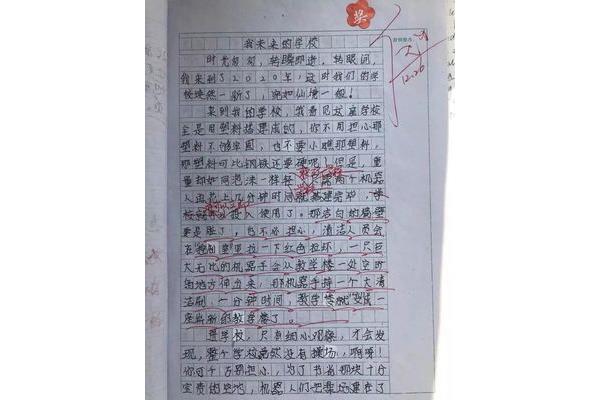 奖
我未来的学校
时光匆匆，转瞬即逝，转眼间，
我来到了2020年，这时我们的学
校焕然一新了，宛如仙境一般！
来到我的学校，我看见这座学校
全是用塑料搭建成的，你不用担心那
塑料不够牢固，也不要小瞧那塑料，
那塑料可比钢铁还要硬呢！但是，重
量却如同泡沫一样轻，只需两个机器
人再花上几分钟时间就基建完毕，学
校就可以投入使用了。那洁白的墙壁
要是脏了，也不必担心，清洁人员会
在控制室里拉一下红色拉环，一只巨
大无比的机器手会从教学楼一处空旷
的地方伸出来，那机器手持一个大清
洁刷，一分钟时间，教学楼就变成一
座崭新的教学楼了。
进学校，只有细心观察，才会发
现，整个学校竟然没有操场，啊呀！
你可千万别担心，为了节省那块十分
宝贵的空地，机器人们把操场建在了
12.26